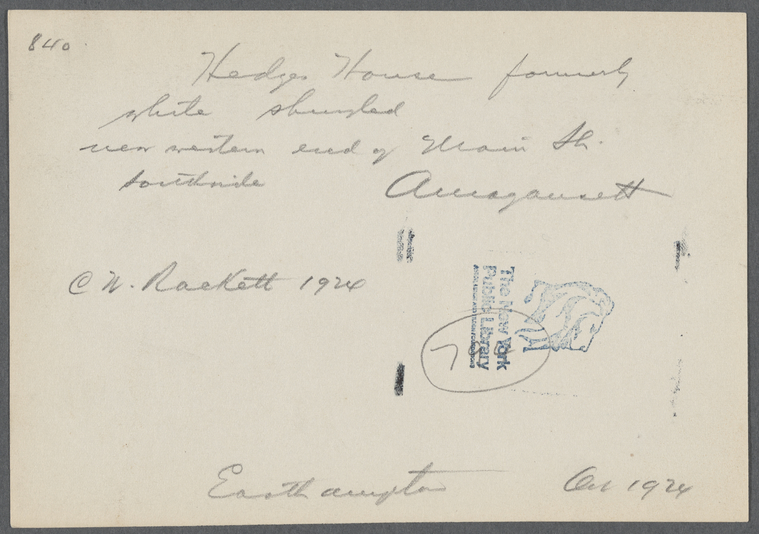 840.
Hedges House formerly
white shingled
near western end of Main St.
southside Amagansett
C W. Rackett 1924
The New York
Public Library
7
Easthampton Oct 1924